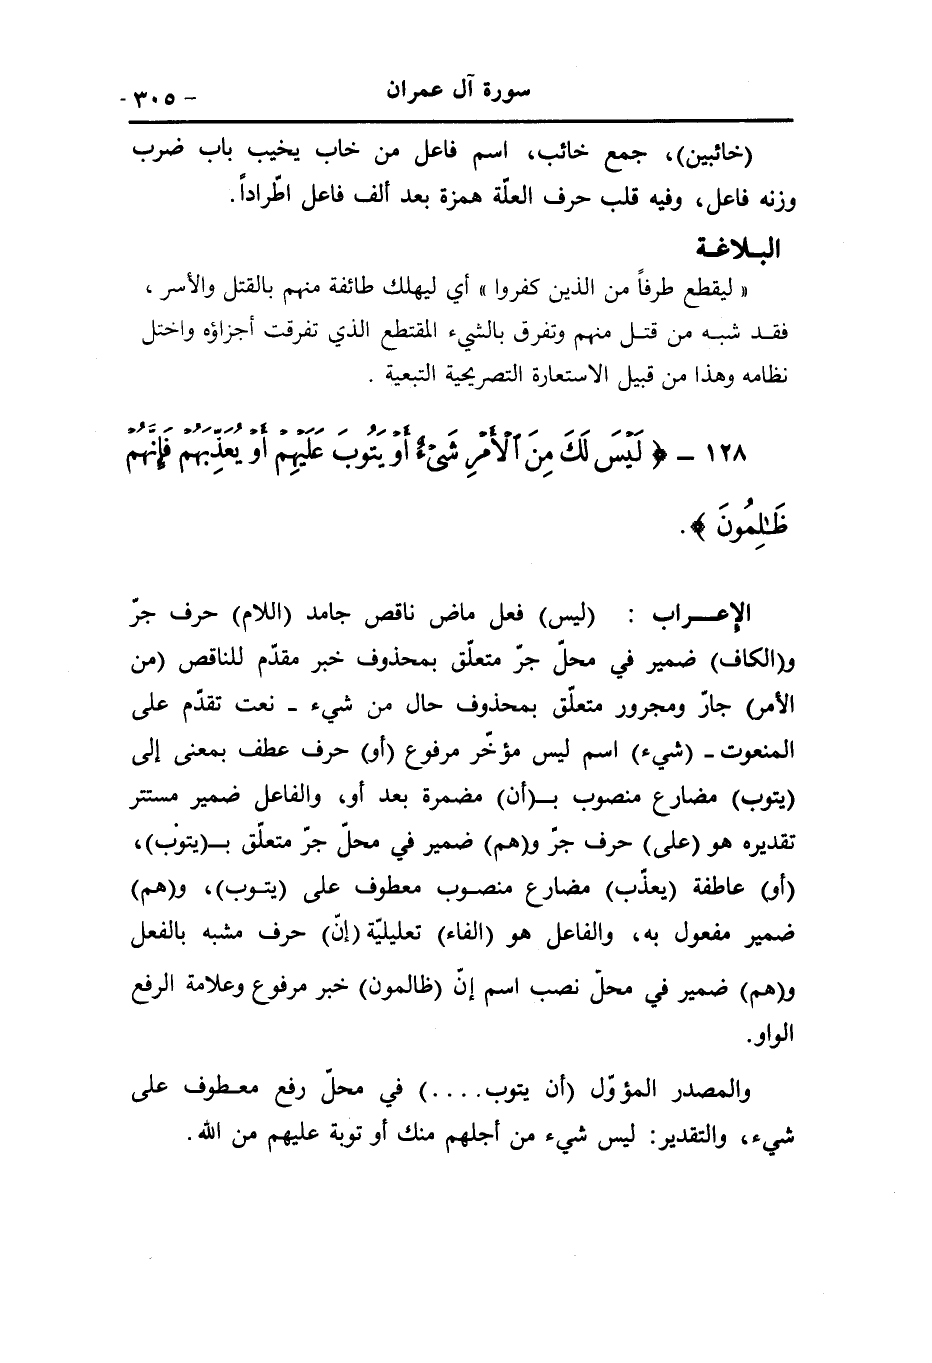 سورة آل عمران
- ٣٠٥ -
(خائبين)، جمع خائب، اسم فاعل من خاب يخيب باب ضرب
وزنه فاعل، وفيه قلب حرف العلّة همزة بعد ألف فاعل اطّراداً.
البلاغة
« ليقطع طرفاً من الذين كفروا » أي ليهلك طائفة منهم بالقتل والأسر ،
فقد شبه من قتل منهم وتفرق بالشيء المقتطع الذي تفرقت أجزاؤه واختل
نظامه وهذا من قبيل الاستعارة التصريحية التبعية .
١٢٨ - ﴿ لَيْسَ لَكَ مِنَ ٱلْأَمْرِ شَىْءٌ أَوْ يَتُوبَ عَلَيْهِمْ أَوْ يُعَذِّبَهُمْ فَإِنَّهُمْ
ظَٰلِمُونَ ﴾.
الإعراب : (ليس) فعل ماض ناقص جامد (اللام) حرف جرّ
و(الكاف) ضمير في محلّ جرّ متعلّق بمحذوف خبر مقدّم للناقص (من
الأمر) جارّ ومجرور متعلّق بمحذوف حال من شيء - نعت تقدّم على
المنعوت - (شيء) اسم ليس مؤخّر مرفوع (أو) حرف عطف بمعنى إلى
(يتوب) مضارع منصوب بـ(أن) مضمرة بعد أو، والفاعل ضمير مستتر
تقديره هو (على) حرف جرّ و(هم) ضمير في محلّ جرّ متعلّق بـ(يتوب)،
(أو) عاطفة (يعذّب) مضارع منصوب معطوف على (يتوب)، و(هم)
ضمير مفعول به، والفاعل هو (الفاء) تعليليّة (إنّ) حرف مشبه بالفعل
و(هم) ضمير في محلّ نصب اسم إنّ (ظالمون) خبر مرفوع وعلامة الرفع
الواو.
والمصدر المؤوّل (أن يتوب....) في محلّ رفع معطوف على
شيء، والتقدير: ليس شيء من أجلهم منك أو توبة عليهم من الله.